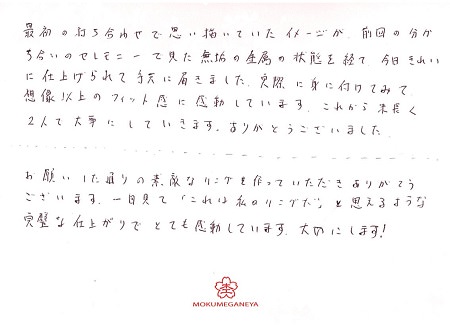 最初の打ち合わせで思い描いていたイメージが、前回の分か
ち合いのセレモニーで見た無垢の金属の状態を経て、今日きれい
に仕上げられて手元に届きました。実際に身に付けてみて、
想像以上のフィット感に感動しています。これから末長く
2人で大事にしていきます。ありがとうございました。
お願いした通りの素敵なリングを作っていただきありがとう
ございます。一目見て「これは私のリングだ」と思えるような
完璧な仕上がりでとても感動しています。大切にします!
MOKUMEGANEYA